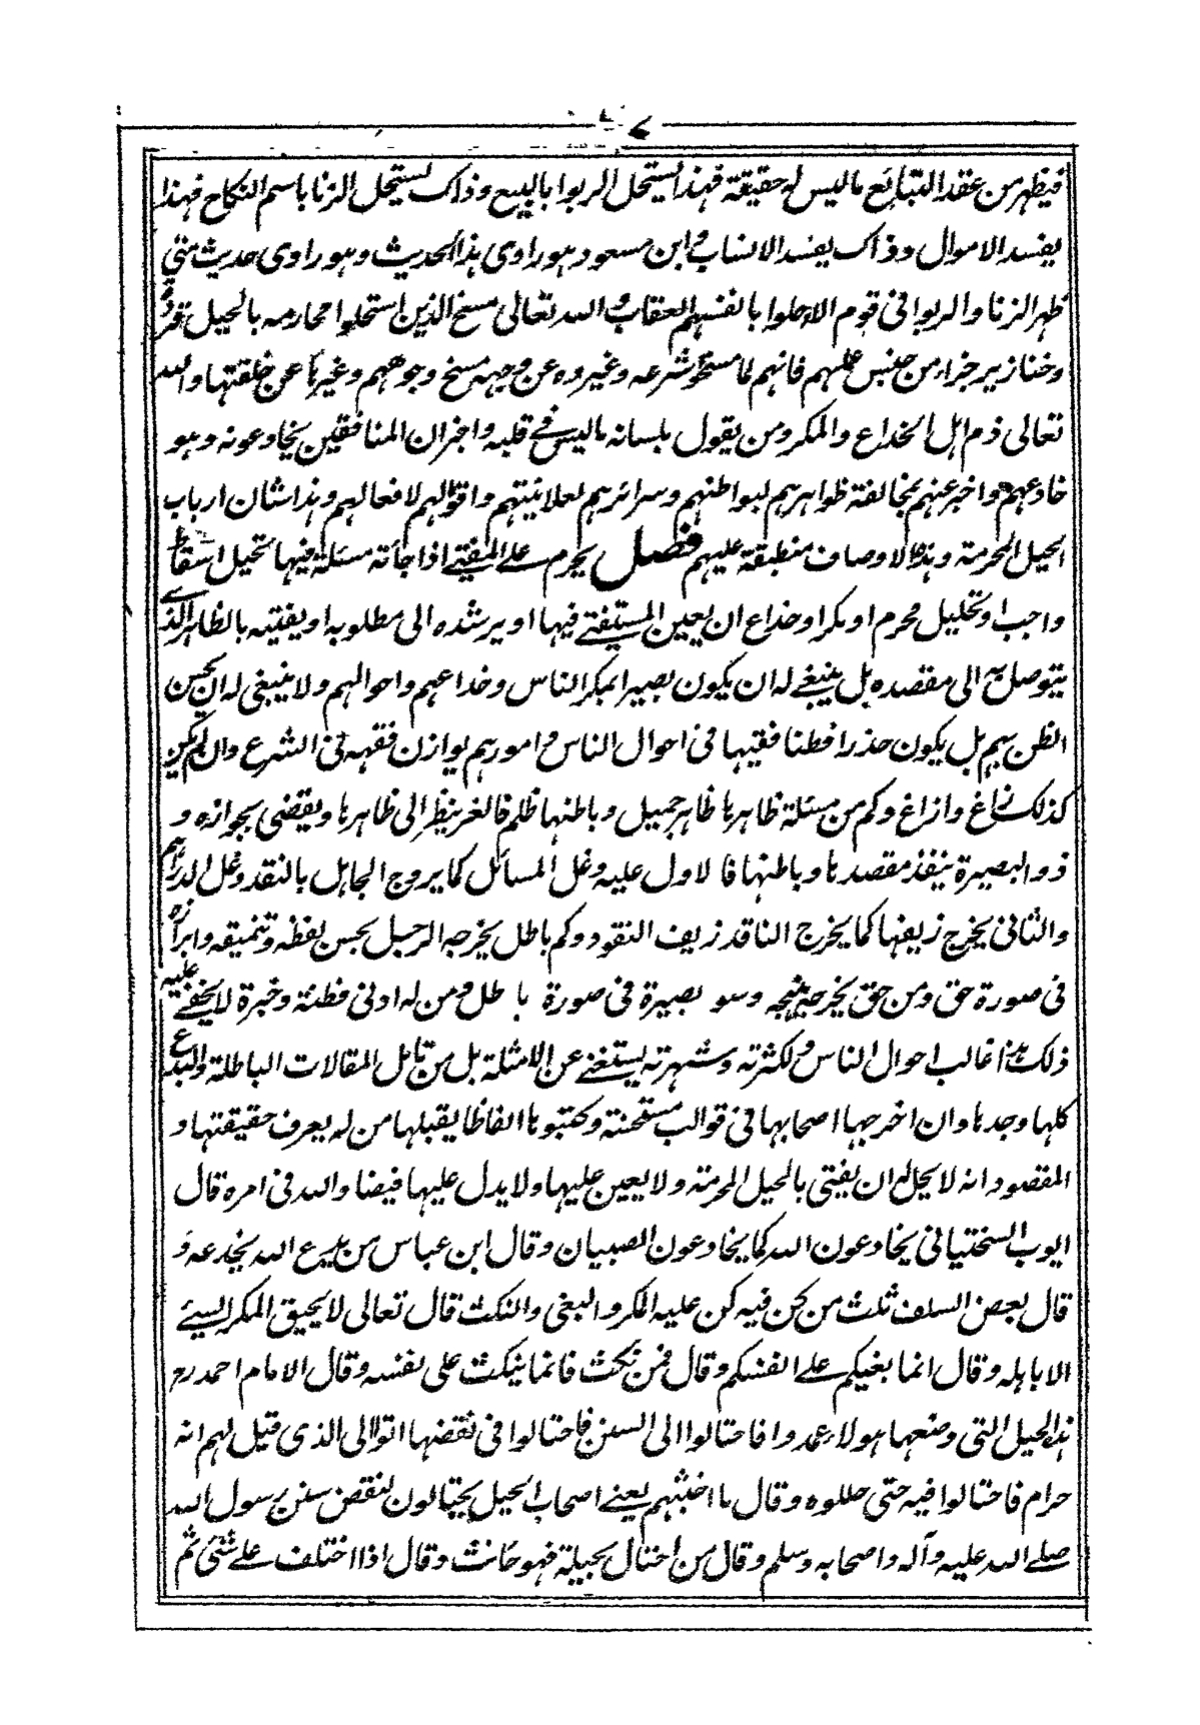 فيظهر من عقد التبائع ما ليس له حقيقة فهذا يستحل الربوا بالبيع وذاك يستحل الزنا باسم النكاح فهذا
يفسد الاموال وذاك يفسد الانساب وابن مسعود هو راوى هذا الحديث وهو راوى حديث متى
ظهر الزنا والربوا فى قوم الا احلوا بانفسهم العقاب والله تعالى مسخ الذين استحلوا محارمه بالحيل قردة
وخنازير جزاء من جنس عملهم فانهم لما مسخوا شرعه وغيروه عن وجهه مسخ وجوههم وغيرها عن خلقتها والله
تعالى ذم اهل الخداع والمكر ومن يقول بلسانه ما ليس فے قلبه واخبر ان المنافقين يخادعونه وهو
خادعهم واخبر عنهم بمخالفة ظواهرهم لبواطنهم وسرائرهم لعلانيتهم واقوالهم لافعالهم وهذا شان ارباب
الحيل المحرمة وهذه الاوصاف منطبقة عليهم فصل يحرم علے المفتے اذا جائته مسئلة فيها تحيل اسقاط
واجب او تحليل محرم او مكر او خداع ان يعين المستفتے فيها او يرشده الى مطلوبه او يفتيه بالظاهر الذے
يتوصل به الى مقصده بل ينبغے له ان يكون بصيرا بمكر الناس وخداعهم واحوالهم ولا ينبغى له ان يحسن
الظن بهم بل يكون حذرا فطنا فقيها فى احوال الناس وامورهم يوازن فقهه فى الشرع وان لم يكن
كذلك زاغ وازاغ وكم من مسئلة ظاهرها ظاهر جميل وباطنها ظلم فالغر ينظر الى ظاهرها ويقضى بجوازه و
ذو البصيرة ينفذ مقصدها وباطنها فالاول عليه وغل المسائل كما يروج الجاهل بالنقد وغل الدراهم
والثانى يخرج زيفها كما يخرج الناقد زيف النقود وكم باطل يخرجه الرجل بحسن لفظه وتنميقه وابرازه
فى صورة حق ومن حق يخرجه بتهجينه وسو بصيرة فى صورة باطل ومن له ادنى فطنة وخبرة لا يخفے عليه
ذلك بل هذا غالب احوال الناس ولكثرته وشهرته يستغنے عن الامثلة بل من تامل المقالات الباطلة والبدع
كلها وجدها وان اخرجها اصحابها فى قوالب مستحسنة وكتبوها الفاظا يقبلها من لم يعرف حقيقتها و
المقصود انه لا يحل له ان يفتى بالحيل المحرمة ولا يعين عليها ولا يدل عليها فيضاد الله فى امره قال
ايوب السختيانى يخادعون الله كما يخادعون الصبيان وقال ابن عباس من يخدع الله يخدعه و
قال بعض السلف ثلث من كن فيه كن عليه المكر والبغى والنكث قال تعالى لا يحيق المكر السيئے
الا باهله وقال انما بغيكم علے انفسكم وقال فمن نكث فانما ينكث على نفسه وقال الامام احمد رح
هذه الحيل التى وضعها هولاء عمدوا فاحتالوا الى السنن فاحتالوا فى نقضها اتوا الى الذى قيل لهم انه
حرام فاحتالوا فيه حتى حللوه وقال ما اخبثهم يعنے اصحاب الحيل يحتالون لنقض سنن رسول الله
صلے الله عليه وآله واصحابه وسلم وقال من احتال بحيلة فهو حانث وقال اذا اختلف علے شئى ثم